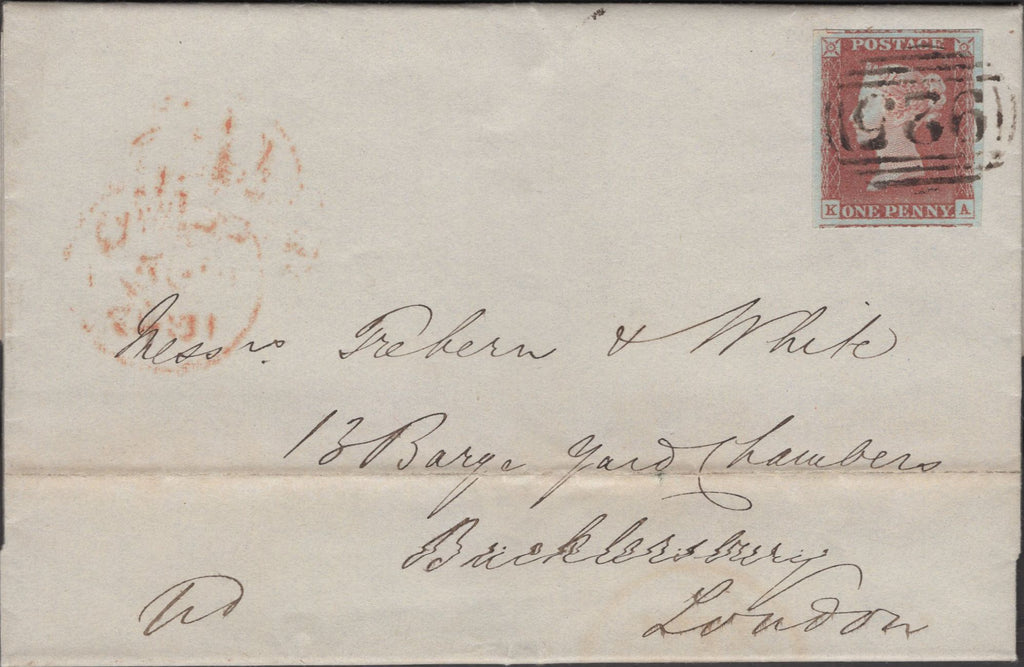 POSTAGE
925
K ONE PENNY. A
Messrs. Trebern & White
13 Barge Yard Chambers
Bucklersbury
London